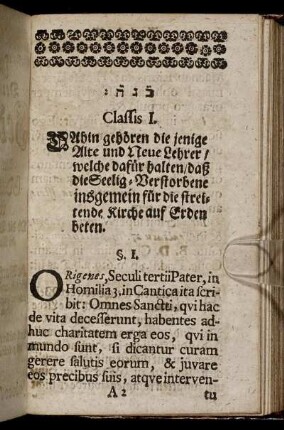 Classis I.
Dahin gehören die jenige
Alte und Neue Lehrer/
welche dafür halten/daß
die Seelig-Verstorbene
insgemein für die strei-
tende Kirche auf Erden
beten.
§. I.
ORigenes, Seculi tertii Pater, in
Homilia 3, in Cantica ita scri-
bit: Omnes Sanctti, qvi hac
de vita decesserunt, habentes ad-
huc charitatem erga eos, qvi in
mundo sunt, si dicantur curam
gerere salutis eorum, & juvare
eos precibus suis, atqve interven-
A 2 tu